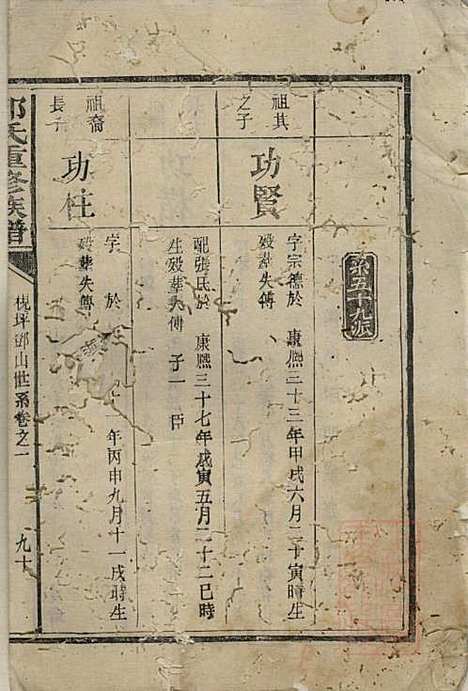 系五十九派
祖其
之子
功賢
字宗德於 康熙三十三年甲戌六月二十寅時生
歿葬失傳
配張氏於 康熙三十七年戊寅五月二十二巳時
生歿葬失傳 子一 臣
祖裔
長子
功柱
字 於 年丙申九月十一戌時生
歿葬失傳
氏重修族譜
梘坪鄧山世系卷之一 九十